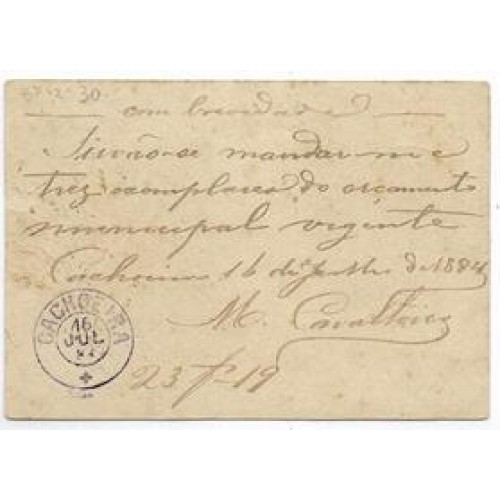 30
com brevidade
Sirvão-se mandar-me
trez exemplares do orçamento
municipal vigente
Cachoeira 16 de Julho de 1884
M.
CACHOEIRA
16
JUL
23
19